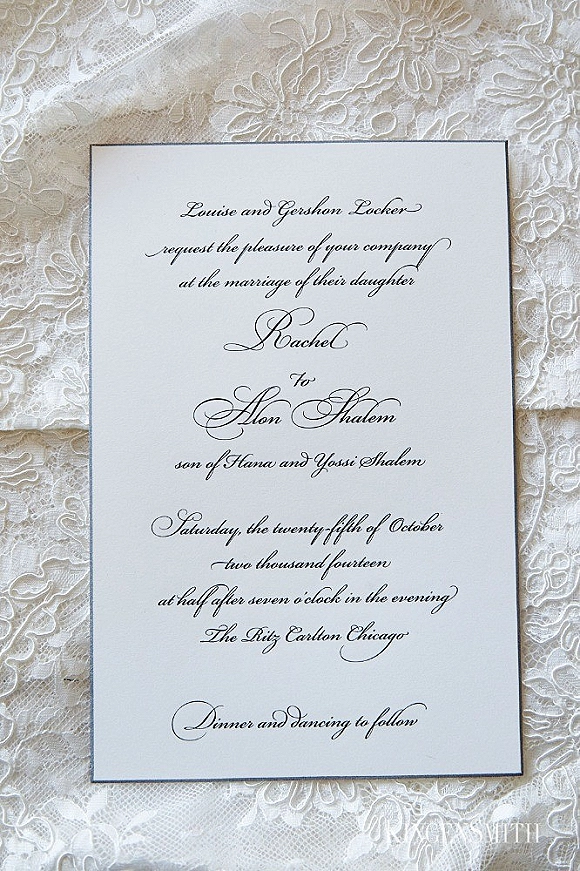 Louise and Gershon Locker
request the pleasure of your company
at the marriage of their daughter
Rachel
to
Alon Shalem
son of Hana and Yossi Shalem
Saturday, the twenty-fifth of October
two thousand fourteen
at half after seven o'clock in the evening
The Ritz Carlton Chicago
Dinner and dancing to follow
KINGENSMITH